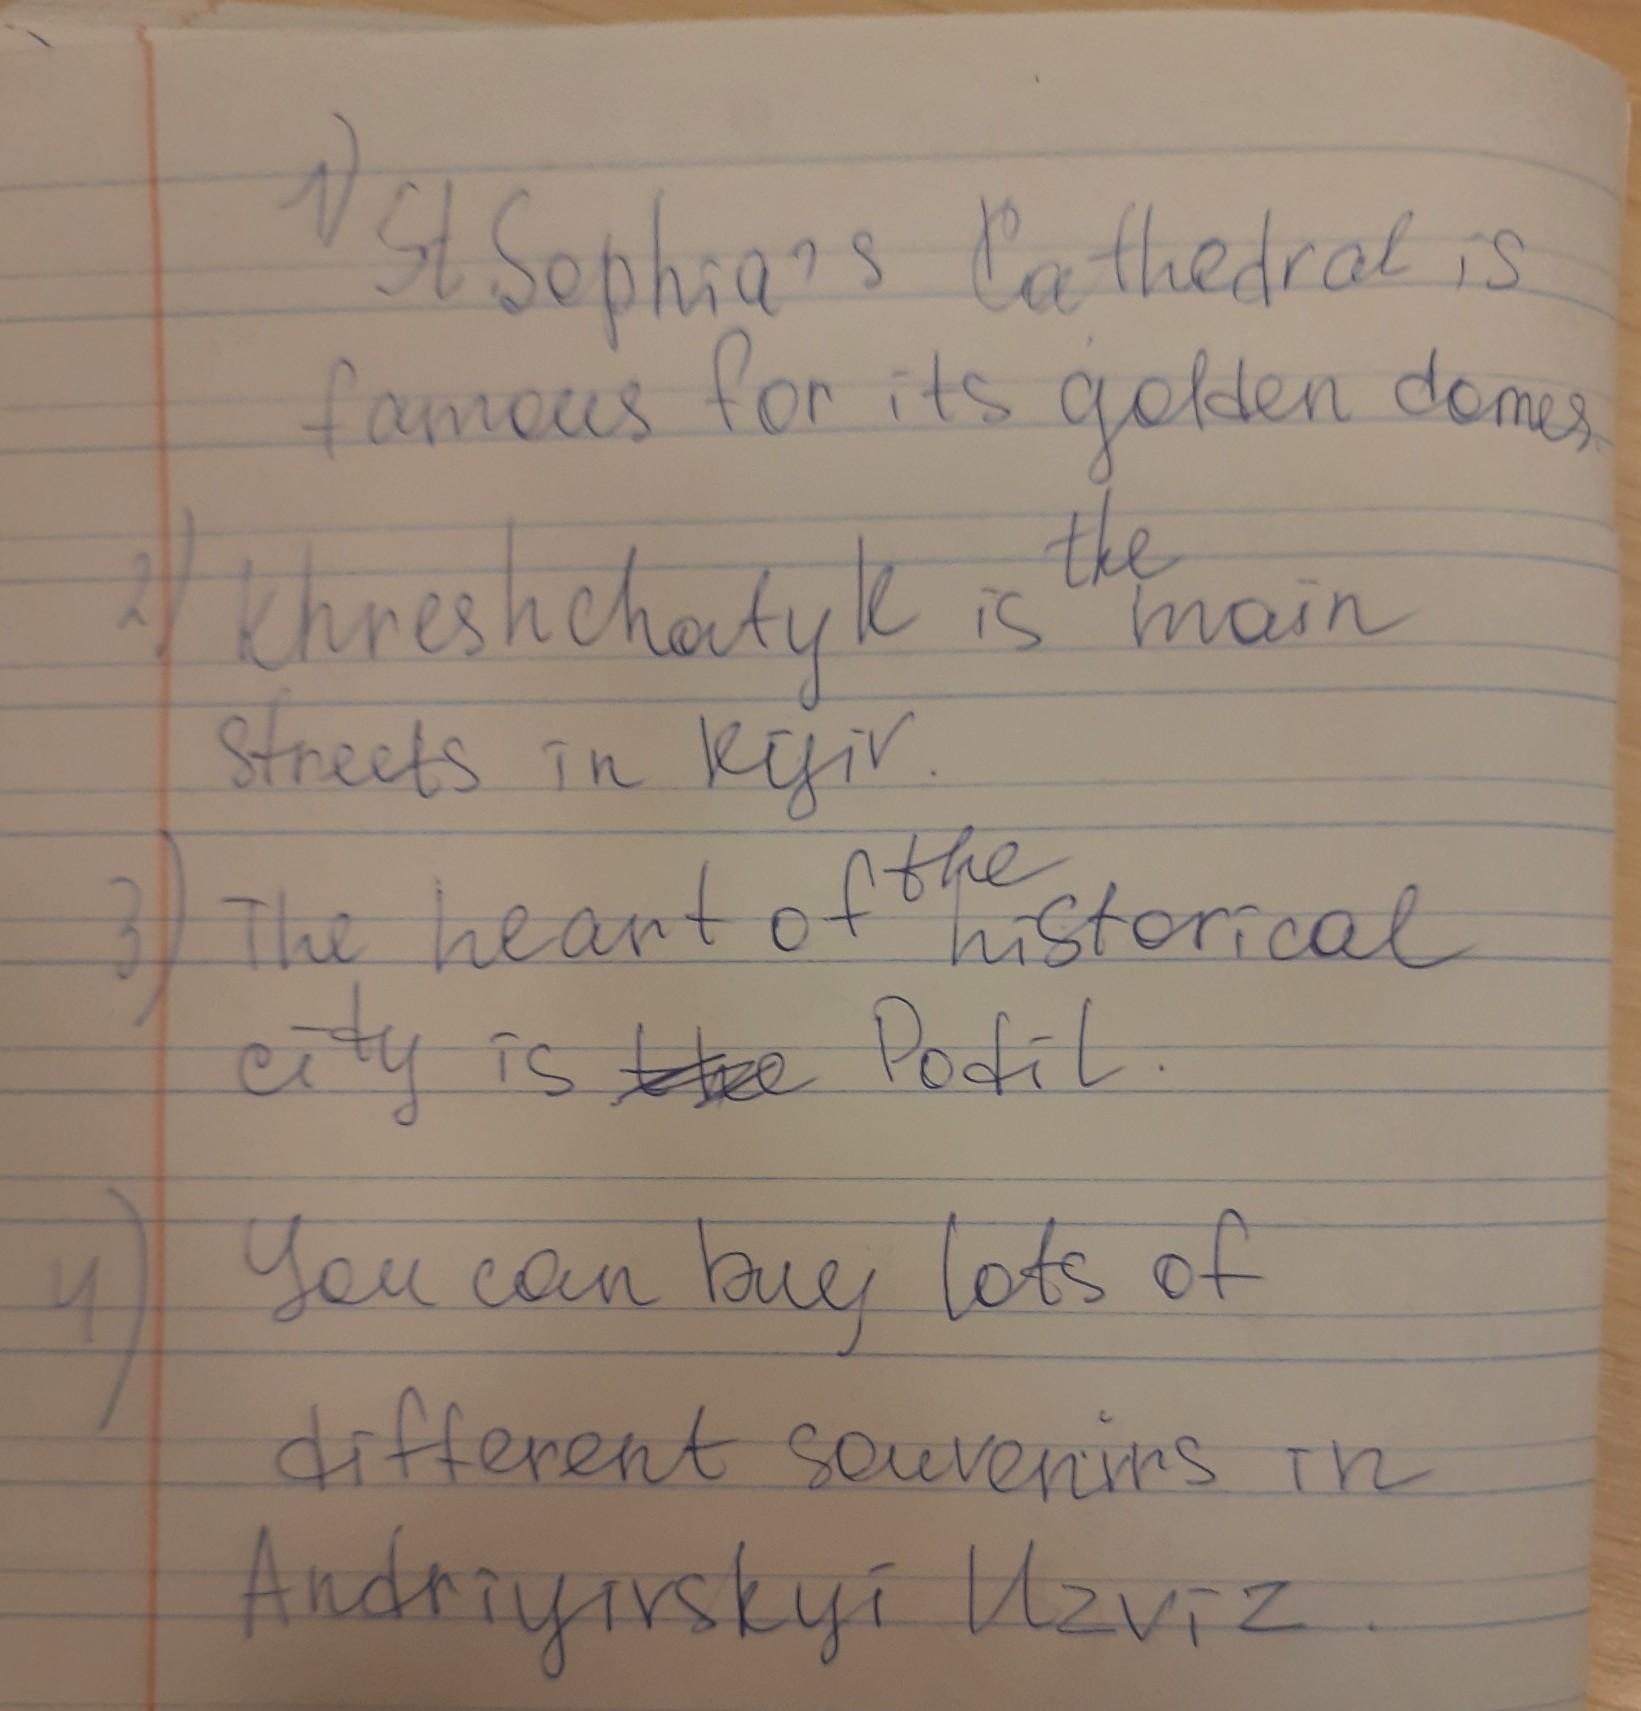 1) St Sophia's Cathedral is
famous for its golden domes.
2) Khreshchatyk is the main
streets in Kyjiv.
3) The heart of the historical
city is the Podil.
4) You can buy lots of
different souvenirs in
Andriyivskyi Uzviz.